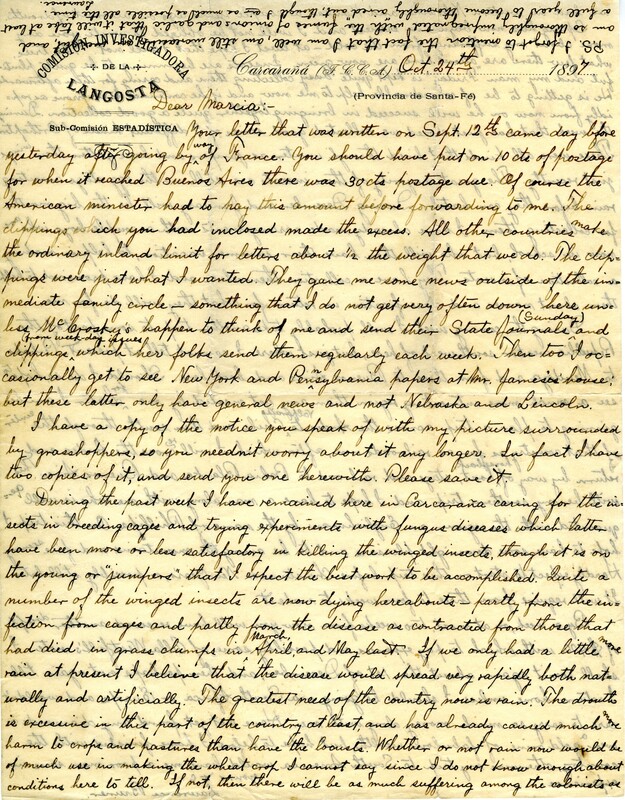 P.S. I forgot to mention the fact that I am well, am still working and
am so thoroughly impregnated with the fumes of onions and garlic that it will take at least
a full year to become thoroughly aired out though I air as much as possible all the time.
Lawrence.
COMISIÓN INVESTIGADORA
DE LA
LANGOSTA
Sub-Comisión ESTADÍSTICA
Carcarañá (F. C. C. A.) Oct. 24th 1897
(Provincia de Santa-Fé)
Dear Marcia:-
Your letter that was written on Sept. 12th came day before
yesterday after going by way of France. You should have put on 10 cts of postage
for when it reached Buenos Aires there was 30 cts postage due. Of course the
American minister had to pay this amount before forwarding to me. The
clippings which you had inclosed made the excess. All other countries make
the ordinary inland limit for letters about ½ the weight that we do. The clip-
pings were just what I wanted. They gave me some news outside of the im-
mediate family circle — something that I do not get very often down here un-
less McCrosky's happen to think of me and send their State Journals (Sunday) and
clippings from week day issues, which her folks send them regularly each week. Then too I oc-
casionally get to see New York and Pennsylvania papers at Mr. James's house;
but these latter only have general news and not Nebraska and Lincoln.
I have a copy of the notice you speak of with my picture surrounded
by grasshoppers, so you needn't worry about it any longer. In fact I have
two copies of it, and send you one herewith. Please save it.
During the past week I have remained here in Carcaraña caring for the in-
sects in breeding cages and trying experiments with fungus diseases which latter
have been more or less satisfactory in killing the winged insects, though it is on
the young or "jumpers" that I expect the best work to be accomplished. Quite a
number of the winged insects are now dying hereabouts — partly from the in-
fection from cages and partly from the disease as contracted from those that
had died in grass clumps in March, April and May last. If we only had a little more
rain at present I believe that the disease would spread very rapidly both nat-
urally and artificially. The greatest need of the country now is rain. The drouth
is excessive in this part of the country at least, and has already caused much more
harm to crops and pastures than have the locusts. Whether or not rain now would be
of much use in making the wheat crop I cannot say since I do not know enough about
conditions here to tell. If not, then there will be as much suffering among the colonists as